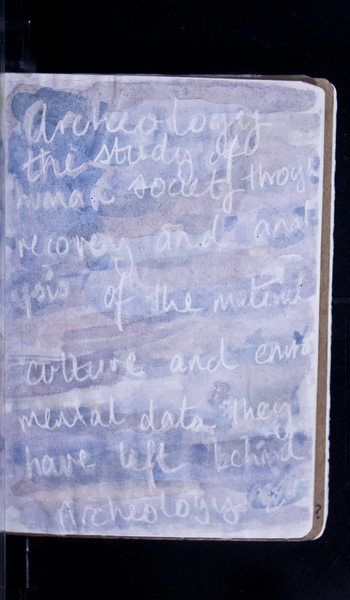 Archeology
the study of
human society throgu
recovery and anal
ysis of the material
culture and enviro
mental data they
have left behind
Archeology
?